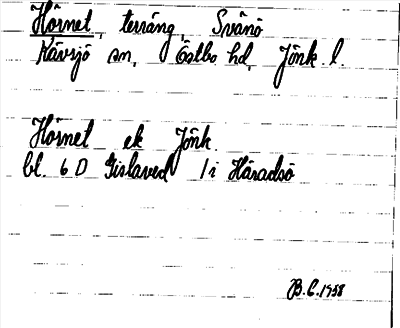 Hörnet, terräng, Svänö
Kävsjö sn, Östbo hd, Jönk. l.
Hörnet ek Jönk.
bl. 6 D Gislaved 1i Häradsö
B.C. 1958